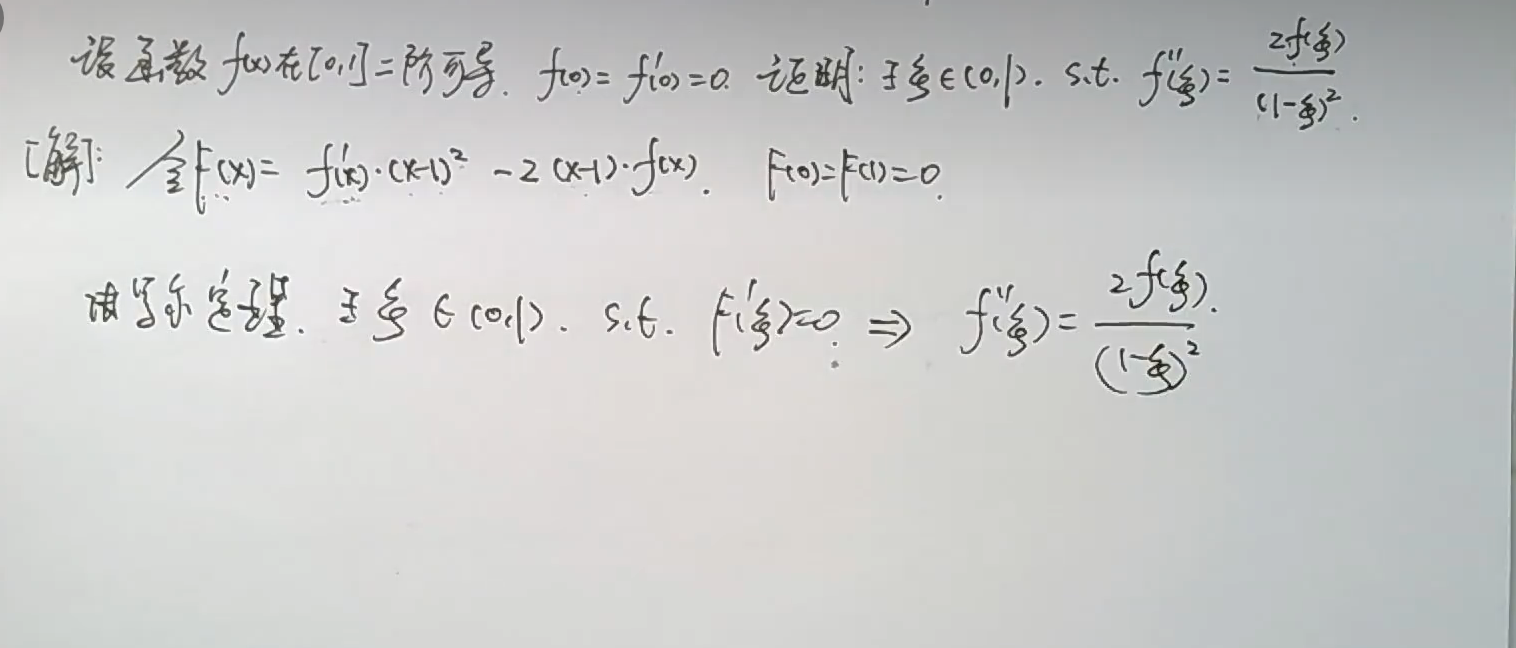 设函数 f(x)在[0,1]二阶可导. f(0)=f'(0)=0. 证明:∃ξ∈(0,1). s.t. f''(ξ)=2f(ξ)/(1-ξ)².
[解]: 令F(x)= f'(x)·(x-1)² -2(x-1)·f(x). F(0)=F(1)=0.
由罗尔定理. ∃ξ∈(0,1). s.t. F'(ξ)=0. ⇒ f''(ξ)=2f(ξ)/(1-ξ)².